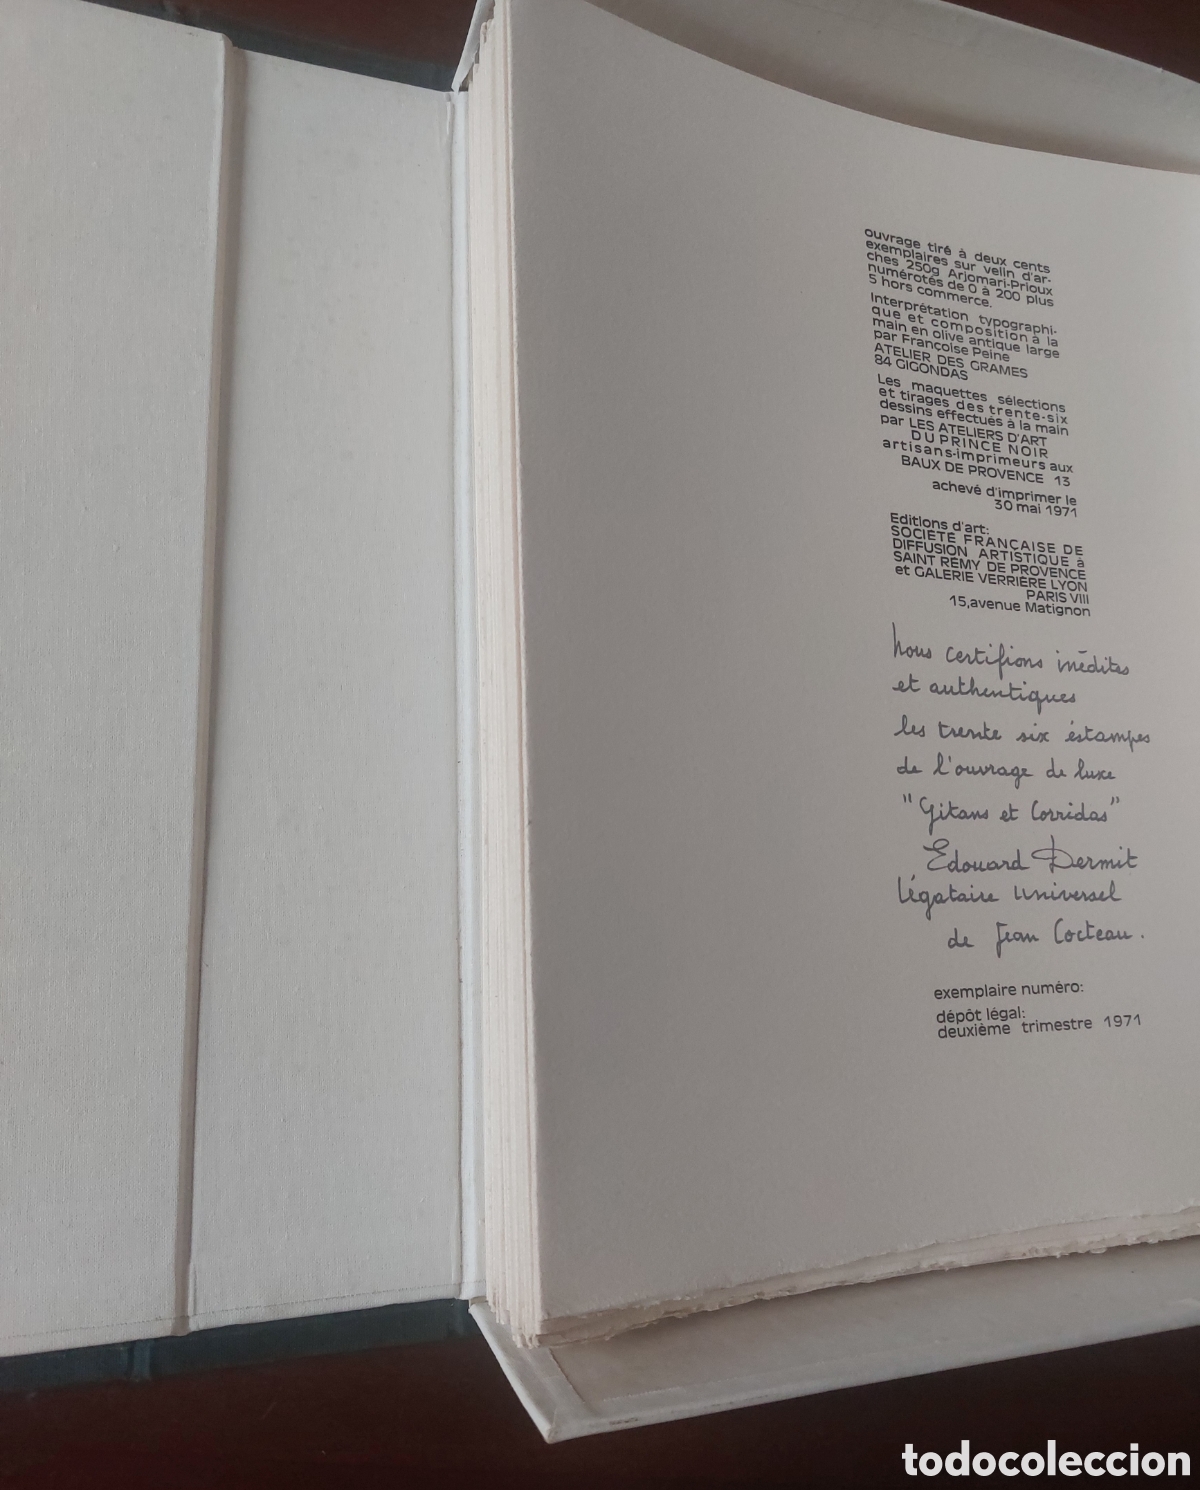 ouvrage tiré à deux cents
exemplaires sur velin d'ar-
ches 250g Arjomari-Prioux
numérotés de 0 à 200 plus
5 hors commerce.
Interprétation typographi-
que et composition à la
main en olive antique large
par Francoise Peine
ATELIER DES GRAMES
84 GIGONDAS
Les maquettes sélections
et tirages des trente-six
dessins effectués à la main
par LES ATELIERS D'ART
DU PRINCE NOIR
artisans-imprimeurs aux
BAUX DE PROVENCE 13
achevé d'imprimer le
30 mai 1971
Editions d'art:
SOCIÉTÉ FRANÇAISE DE
DIFFUSION ARTISTIQUE à
SAINT RÉMY DE PROVENCE
et GALERIE VERRIÈRE LYON
PARIS VIII
15,avenue Matignon
Nous certifions inédites
et authentiques
les trente six éstampes
de l'ouvrage de luxe
"Gitans et Corridas"
Edouard Dermit
légataire universel
de Jean Cocteau.
exemplaire numéro:
dépôt légal:
deuxième trimestre 1971
todocoleccion